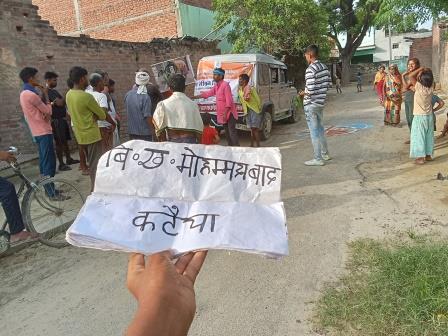 बि॰ख॰मोहम्मदाबाद
कटैचा